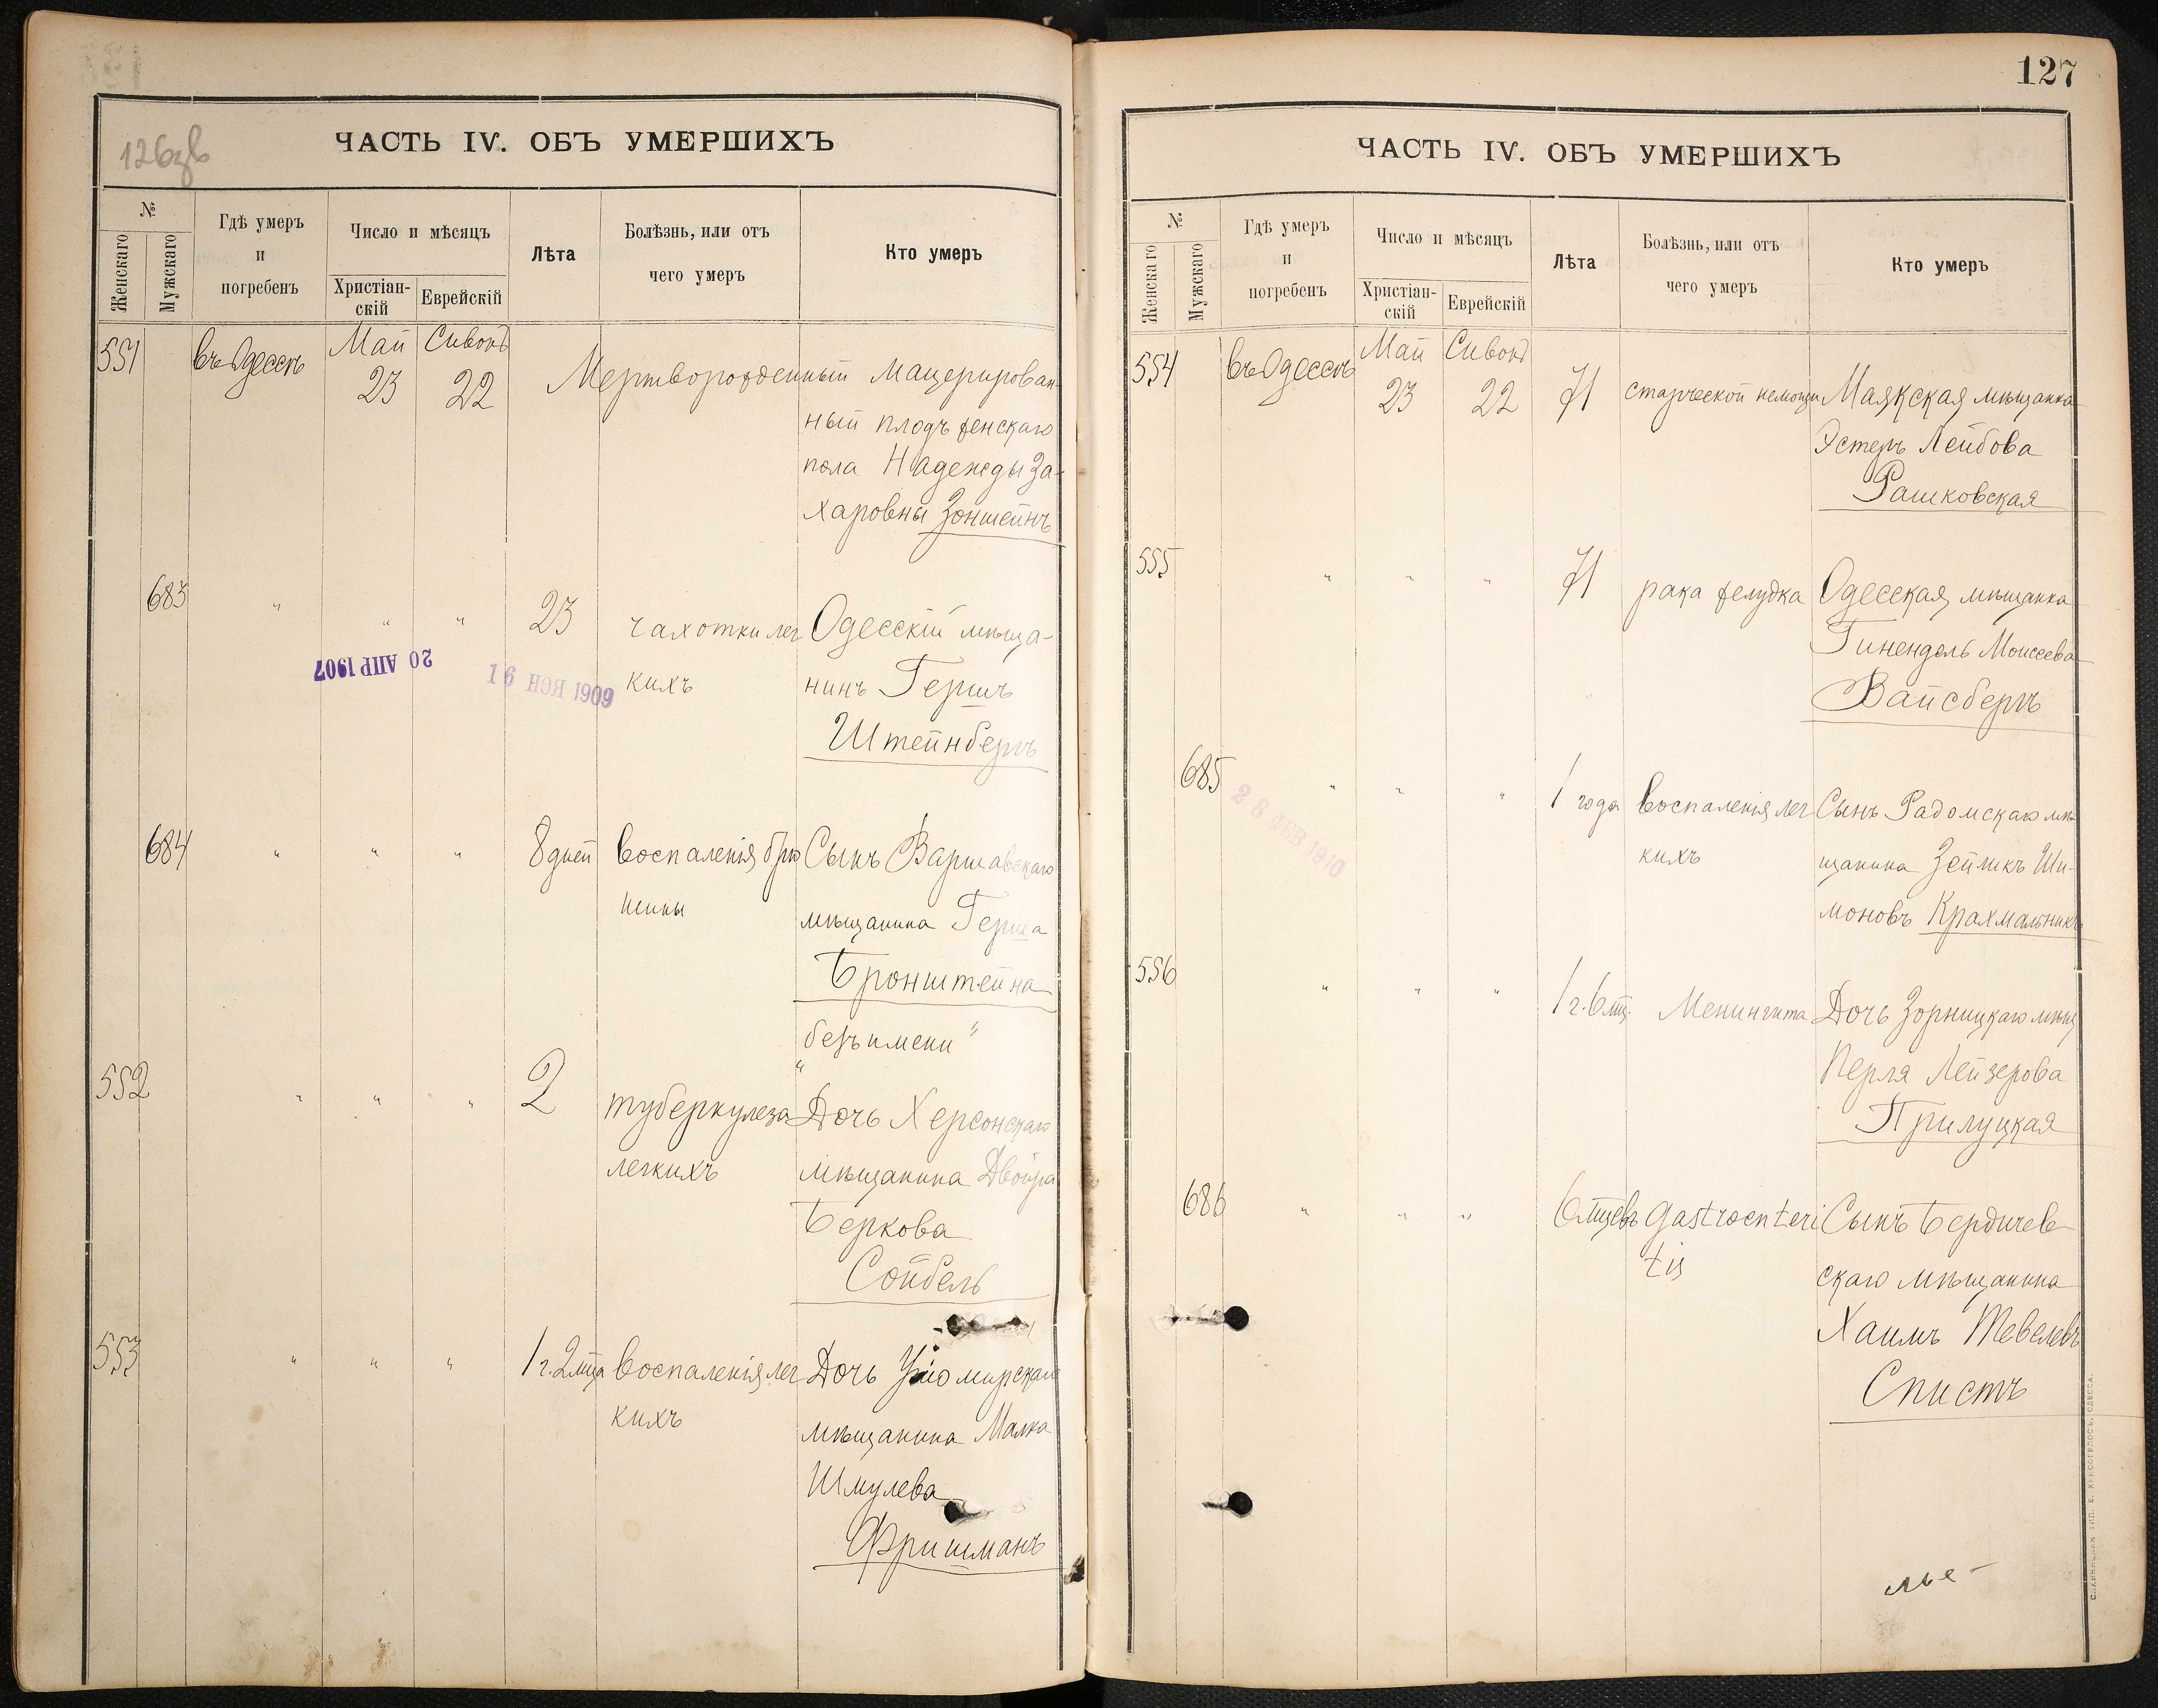 126зв
ЧАСТЬ IV. ОБЪ УМЕРШИХЪ
№
Женскаго
Мужскаго
Гдѣ умеръ
и
погребенъ
Число и мѣсяцъ
Христіан-
скій
Еврейскій
Лѣта
Болѣзнь, или отъ
чего умеръ
Кто умеръ
551 въ Одессѣ Май 23 Сивонъ 22 Мертворожденный мацерирован-
ный плодъ женскаго
пола Надежды За-
харовны Зонштейнъ
683 " " " 23 чахотки лег Одесскій мѣща-
кихъ нинъ Гершъ
Штейнбергъ
20 АПР 1907
16 НОЯ 1909
684 " " " 8 дней воспаленія брю Сынъ Варшавскаго
шины мѣщанина Герша
Бронштейна
"безъ имени"
552 " " " 2 туберкулеза Дочь Херсонскаго
легкихъ мѣщанина Двойра
Беркова
Сойбель
553 " " " 1 г. 2 мца воспаленія лег Дочь
кихъ мѣщанина Малка
Шмулева
Фришманъ
127
ЧАСТЬ IV. ОБЪ УМЕРШИХЪ
№
Женскаго
Мужскаго
Гдѣ умеръ
и
погребенъ
Число и мѣсяцъ
Христіан-
скій
Еврейскій
Лѣта
Болѣзнь, или отъ
чего умеръ
Кто умеръ
554 въ Одессѣ Май 23 Сивонъ 22 71 старческой немощи Маякская мѣщанка
Эстеръ Лейбова
Рашковская
555 " " " 71 рака желудка Одесская мѣщанка
Гинендель Моисеева
Вайсбергъ
685 " " " 1 года воспаленія лег Сынъ Радомскаго мѣ-
кихъ щанина Зейликъ Ши-
моновъ Крахмальникъ
28 ФЕВ 1910
556 " " " 1 г. 6 мц. Менингита Дочь Зорницкаго мѣщ
Перля Лейзерова
Прилуцкая
686 " " " 6 мцевъ gastroenteri Сынъ Бердичев
tis скаго мѣщанина
Хаимъ Тевелевъ
Спистъ
СЛАВЯНСКАЯ ТИП. Е. ХРИСОГЕЛОСЪ, ОДЕССА.